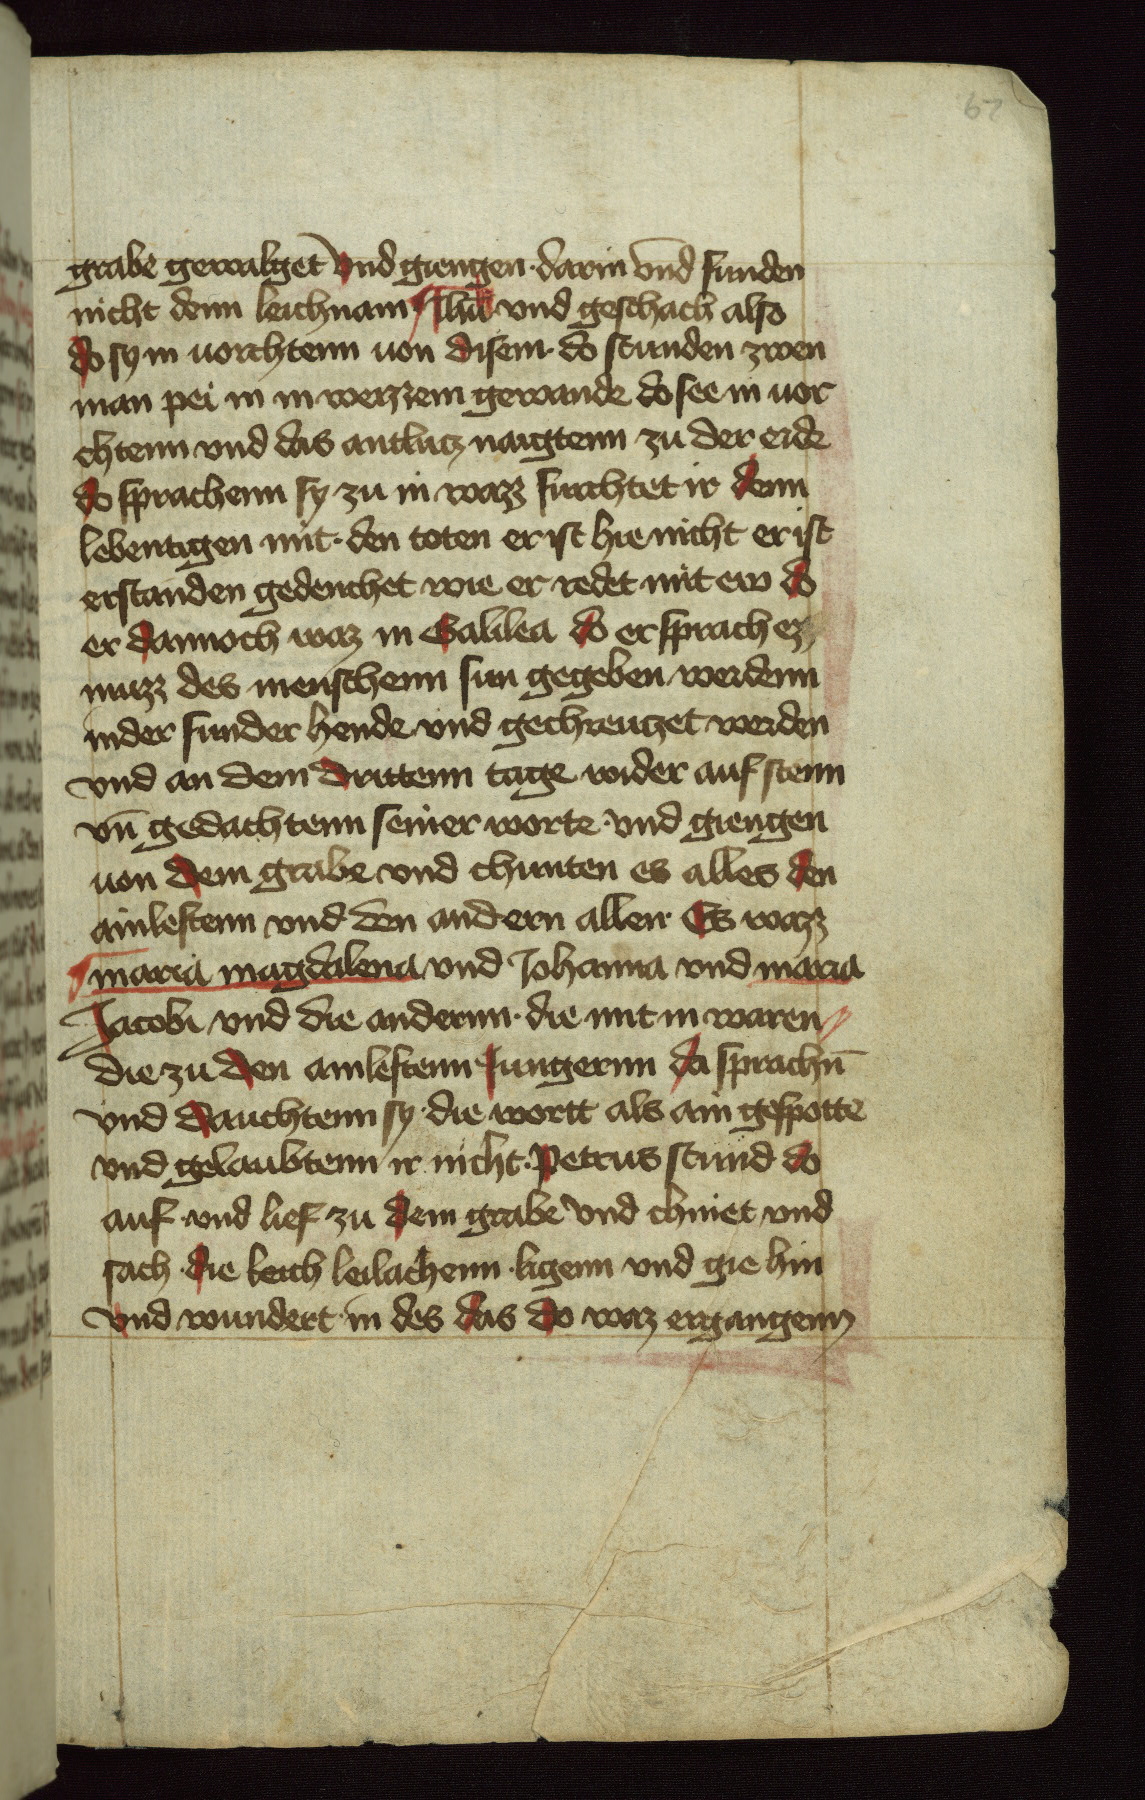 67
grabe gewalget Und giengen · darin vnd funden
nicht denn leichnam Jhū vnd geschach also
do sy in uorchtenn uon disem · do stunden zwen
man pei in in weizzem gewande do see in uor
chtenn vnd das antlutz naigtenn zu der erde
do sprachenn sy zu in wazz furchtet ir denn
lebentigen mit · den toten er ist hie nicht er ist
erstanden gedenchet wie er redet mit ew do
er dannoch waz in Galilea do er sprach ez
muzz des menschenn sun gegeben werdenn
inder sunder hende vnd gechreutzet werden
vnd an dem drittenn tage wider auf stenn
vn̄ gedachtenn seiner worte · vnd giengen
uon dem grabe vnd chunten es alles den
ainleftenn vnd den andern allen · Es wazz
maria magdalena vnd Johanna vnd maria
Jacobi vnd die andernn · die mit in waren
die zu den ainleftenn Jungernn da sprachn̄
vnd dauchtenn sy · die wortt als ain gespotte
vnd gelaubtenn ir nicht · Petrus stund do
auf · vnd lief zu dem grabe vnd chniet vnd
sach · die leich leilachenn · ligenn vnd gie hin
vnd wundert in des das do waz ergangenn